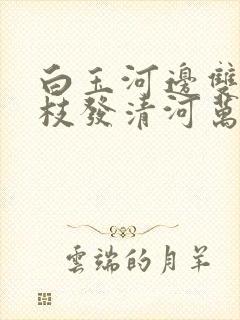 白玉河邊雙
枝發清河萬
雲端的月羊